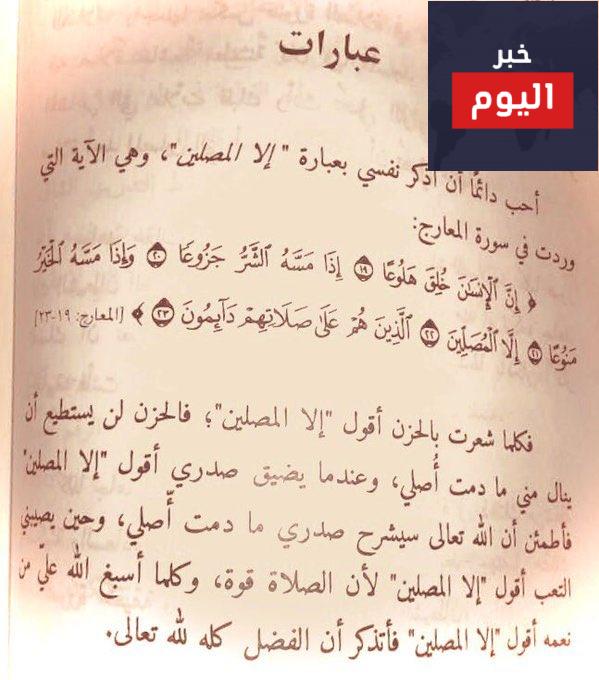 خبر
اليوم
عبارات
أحب دائمًا أن أذكر نفسي بعبارة "إلا المصلين"، وهي الآية التي
وردت في سورة المعارج:
﴿ إِنَّ ٱلْإِنسَٰنَ خُلِقَ هَلُوعًا ۝١٩ إِذَا مَسَّهُ ٱلشَّرُّ جَزُوعًا ۝٢٠ وَإِذَا مَسَّهُ ٱلْخَيْرُ
مَنُوعًا ۝٢١ إِلَّا ٱلْمُصَلِّينَ ۝٢٢ ٱلَّذِينَ هُمْ عَلَىٰ صَلَاتِهِمْ دَآئِمُونَ ۝٢٣ ﴾ [المعارج: ١٩-٢٣]
فكلما شعرت بالحزن أقول "إلا المصلين"؛ فالحزن لن يستطيع أن
ينال مني ما دمت أُصلي، وعندما يضيق صدري أقول "إلا المصلين"
فأطمئن أن الله تعالى سيشرح صدري ما دمت أُصلي، وحين يصيبني
التعب أقول "إلا المصلين" لأن الصلاة قوة، وكلما أسبغ الله عليّ من
نعمه أقول "إلا المصلين" فأتذكر أن الفضل كله لله تعالى.